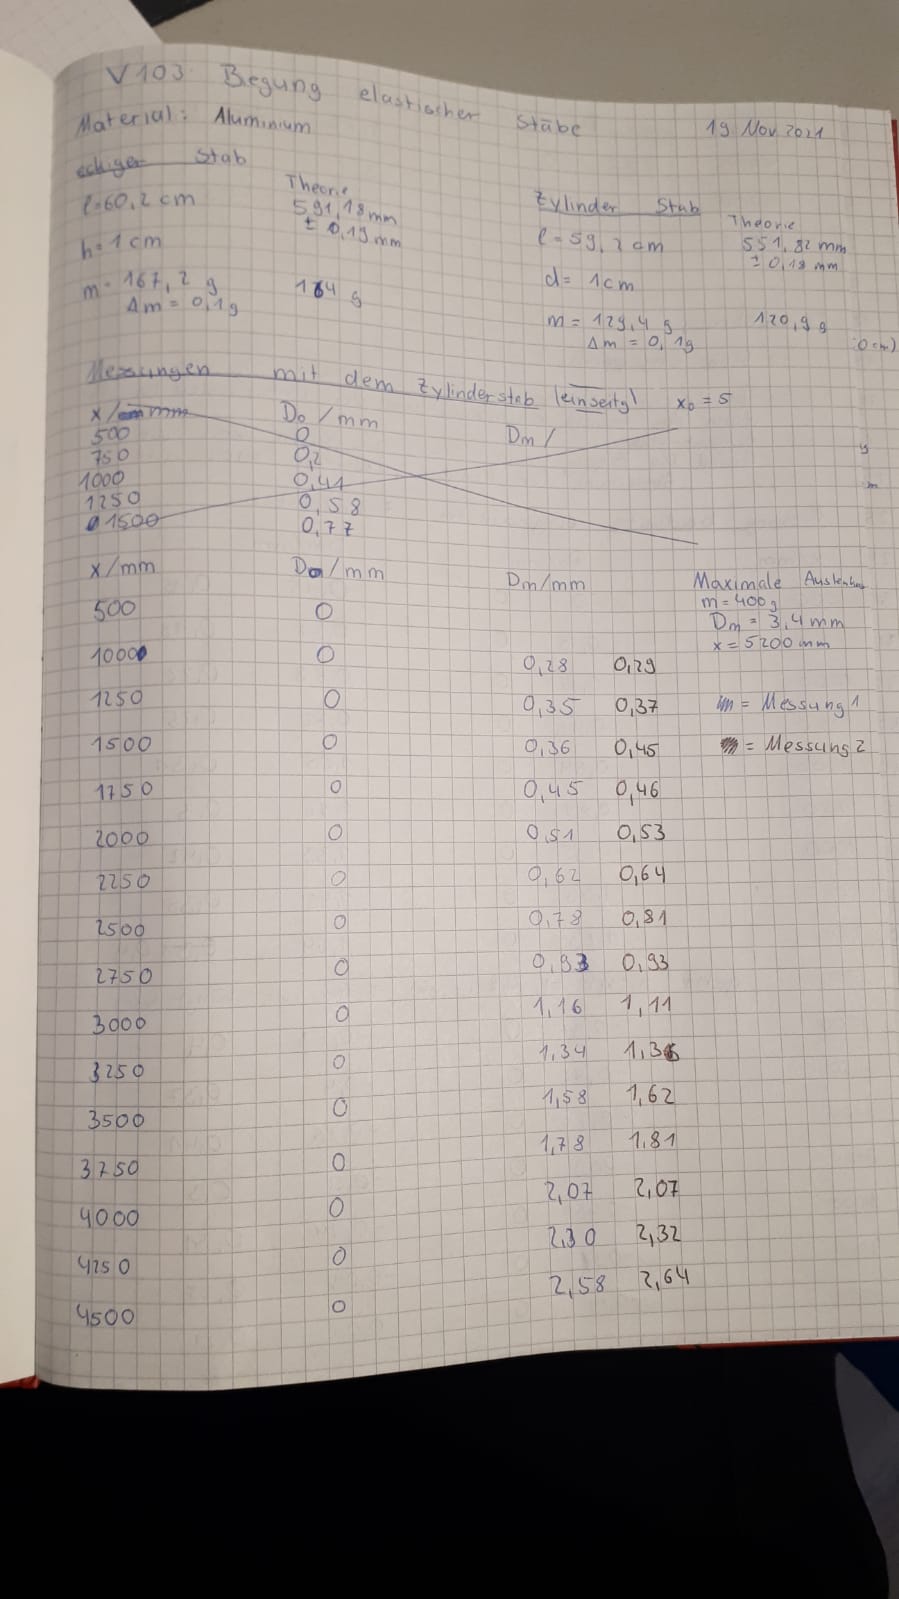 V103 Biegung elastischer Stäbe 19 Nov 2021
Material: Aluminium
eckiger Stab
l=60,2 cm
h=1 cm
m= 167,2 g
Δm = 0,1g
Theorie
591,18mm
± 0,19mm
164 g
Zylinder Stab
l=59,2 cm
d= 1cm
m= 129,4 g
Δm = 0,1g
Theorie
551,82 mm
± 0,18 mm
120,9 g
Messungen mit dem Zylinderstab (einseitg) x₀=5
x/mm D₀/mm Dm/
500 0
750 0,2
1000 0,41
1250 0,58
1500 0,77
x/mm D₀/mm Dm/mm
500 0
1000 0 0,28 0,29
1250 0 0,35 0,37
1500 0 0,36 0,45
1750 0 0,45 0,46
2000 0 0,51 0,53
2250 0 0,62 0,64
2500 0 0,78 0,81
2750 0 0,93 0,93
3000 0 1,16 1,11
3250 0 1,34 1,36
3500 0 1,58 1,62
3750 0 1,78 1,81
4000 0 2,07 2,07
4250 0 2,30 2,32
4500 0 2,58 2,64
Maximale
m=400g
Dm = 3,4mm
x=5200mm
= Messung 1
= Messung 2